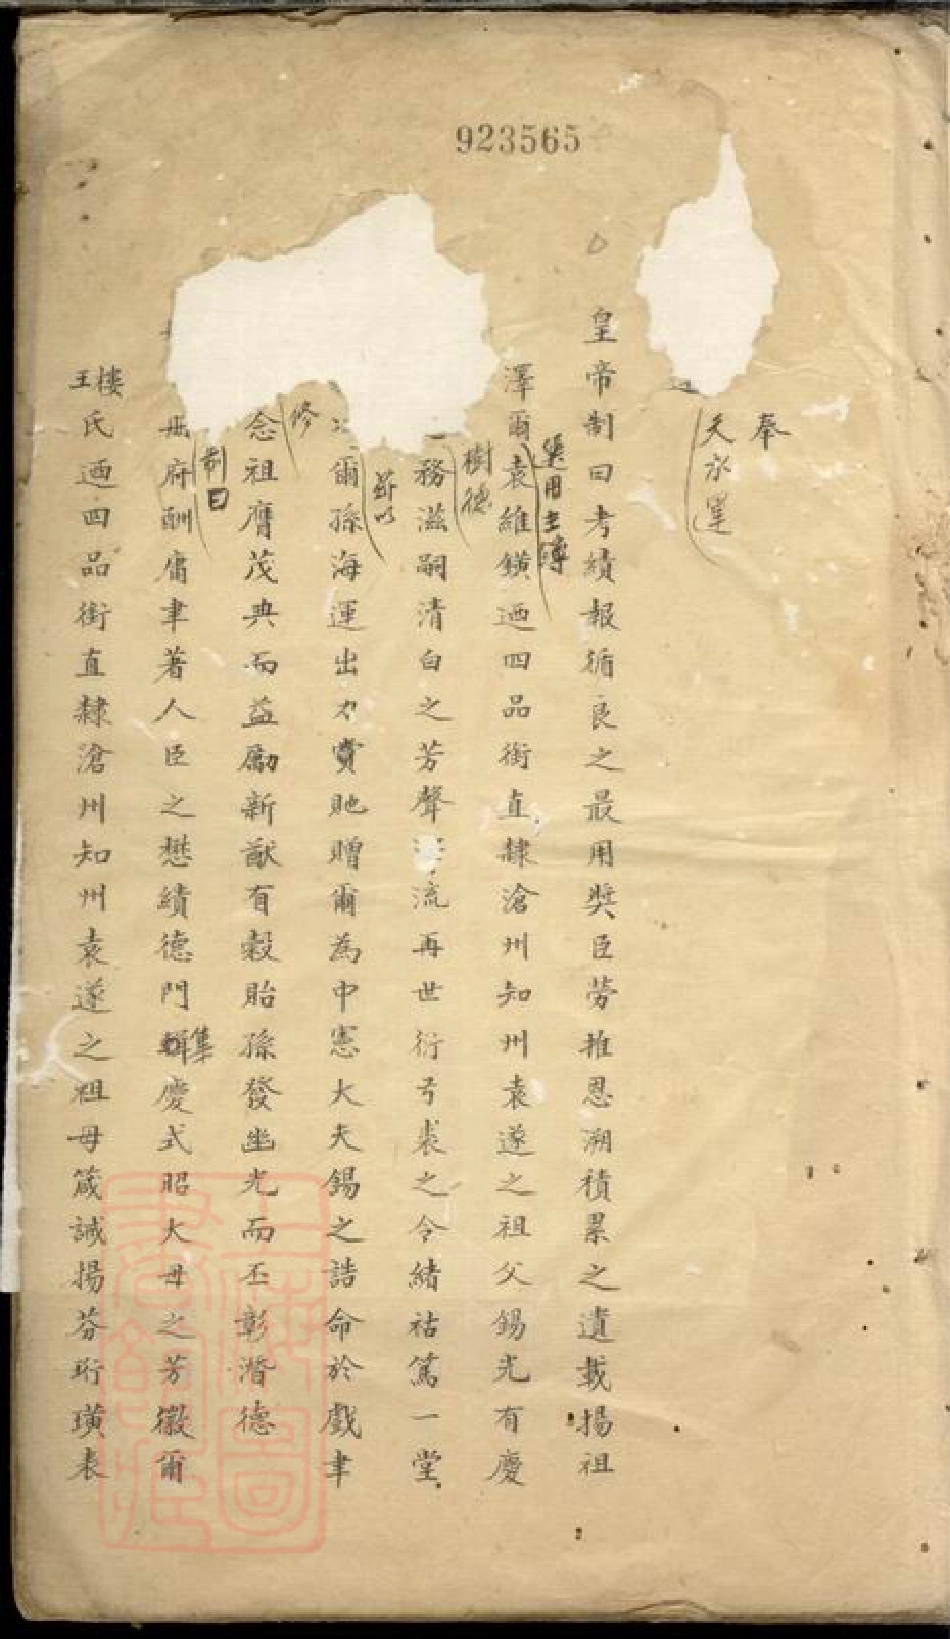 923565
奉
天承運
皇帝制曰考績報循良之最用奬臣勞推恩溯積累之遺載揚祖
澤爾袁維鐄迺四品銜直隸滄州知州袁遂之祖父錫光有慶
樹德
務滋嗣清白之芳聲 流再世衍弓裘之令緒祜篤一堂
玆以
爾孫海運出力賞貤贈爾為中憲大夫錫之誥命於戲聿
修
念祖膺茂典而益勵新猷有穀貽孫發幽光而丕彰潛德
制曰
冊府酬庸聿著人臣之懋績德門輯慶式昭大母之芳徽爾
集
王樓
氏迺四品銜直隸滄州知州袁遂之祖母箴誡揚芬珩璜表
上海圖書館藏